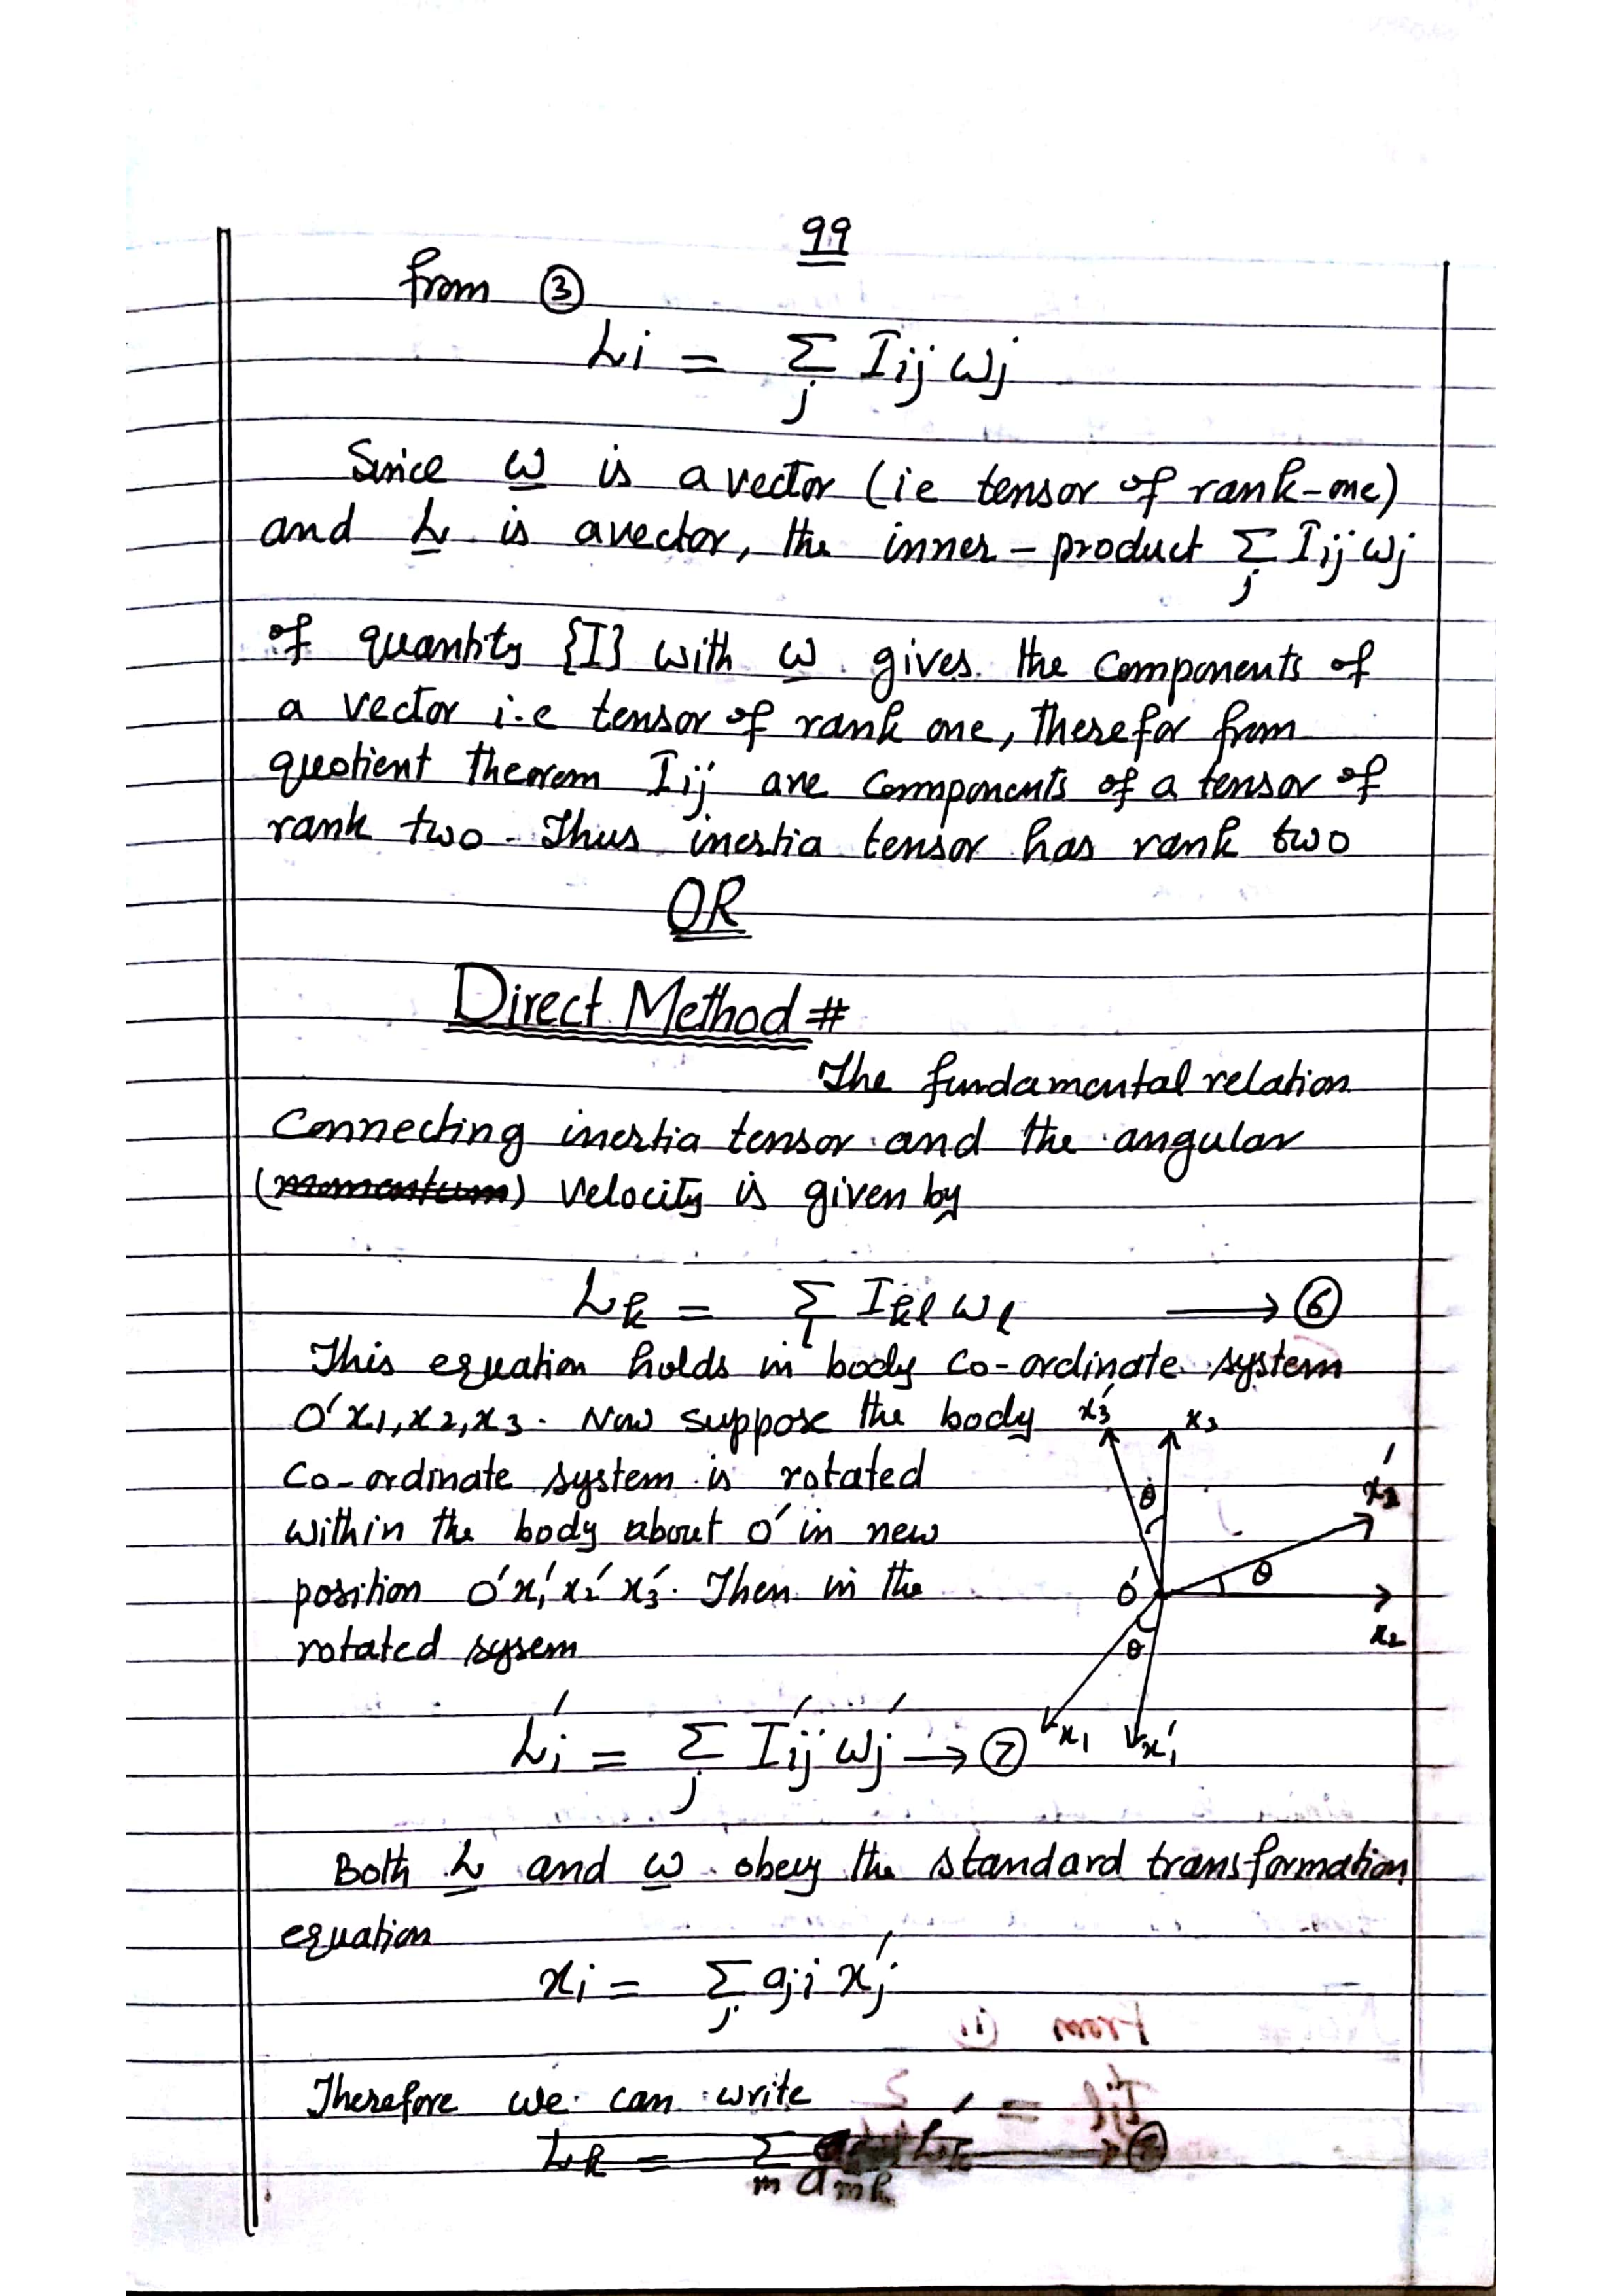 99
from ③
Li = Σj Iij ωj
Sinice ω is a vector (ie tensor of rank-one)
and L is avector, the inner-product Σj Iij ωj
of quantity {I} with ω gives the components of
a vector i.e tensor of rank one, therefor from
quotient theorem Iij are components of a tensor of
rank two. Thus inertia tensor has rank two
OR
Direct Method #
The fundamental relation
Connecting inertia tensor and the angular
(momentum) velocity is given by
Lk = Σl Ikl ωl → ⑥
This equation holds in body co-ordinate system
O'x1,x2,x3. Now suppose the body
Co-ordinate system is rotated
within the body about O' in new
position O'x1'x2'x3'. Then in the
rotated sysem
x3' x3
θ
x2'
θ
O'
x2
θ
x1 x1'
Li' = Σj Iij' ωj' → ⑦
Both L and ω obey the standard transformation
equation
xi = Σj aji xj'
Therefore we can write
Lk = Σm amk